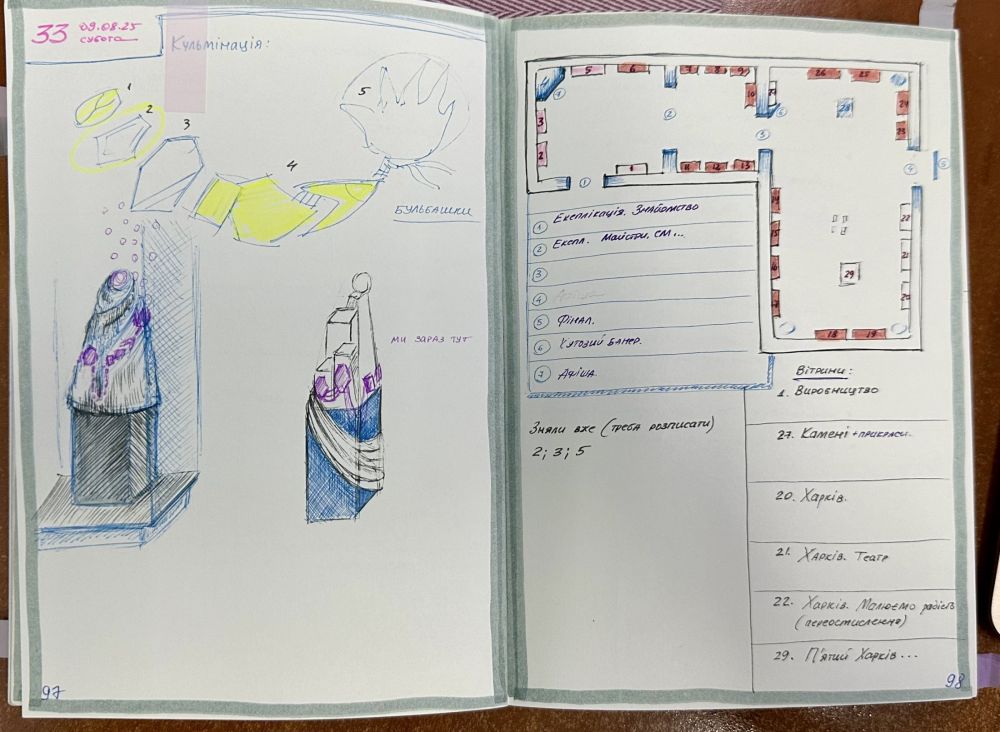 33 09.08.25
субота
Кульмінація:
1
2
3
4
5
БУЛЬБАШКИ
МИ ЗАРАЗ ТУТ
97
5 6 7 8 9 26 25
3 10 24
2 28 23
1 11 12 13
14 22
15 21
16 29
17 20
18 19
1 Експлікація. Знайомство
2 Експл. Майстри, см...
3
4
5 Фінал.
6 Кутовий банер.
7 Афіша.
Зняли вже (треба розписати)
2; 3; 5
Вітрини:
1. Виробництво
27. Камені + прикраси.
20. Харків.
21. Харків. Театр
22. Харків. Малюємо радість
(переосмислення)
29. П'ятий Харків...
98